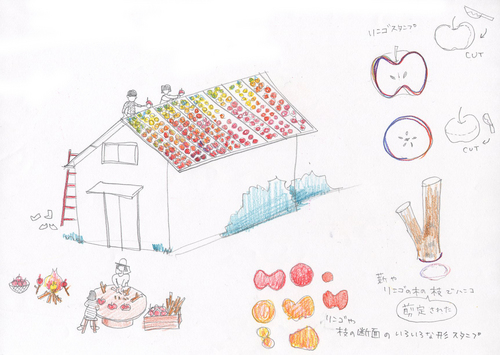 リンゴスタンプ
CUT
CUT
リンゴの木の枝でハンコ
剪定された
リンゴや
枝の断面のいろいろな形スタンプ